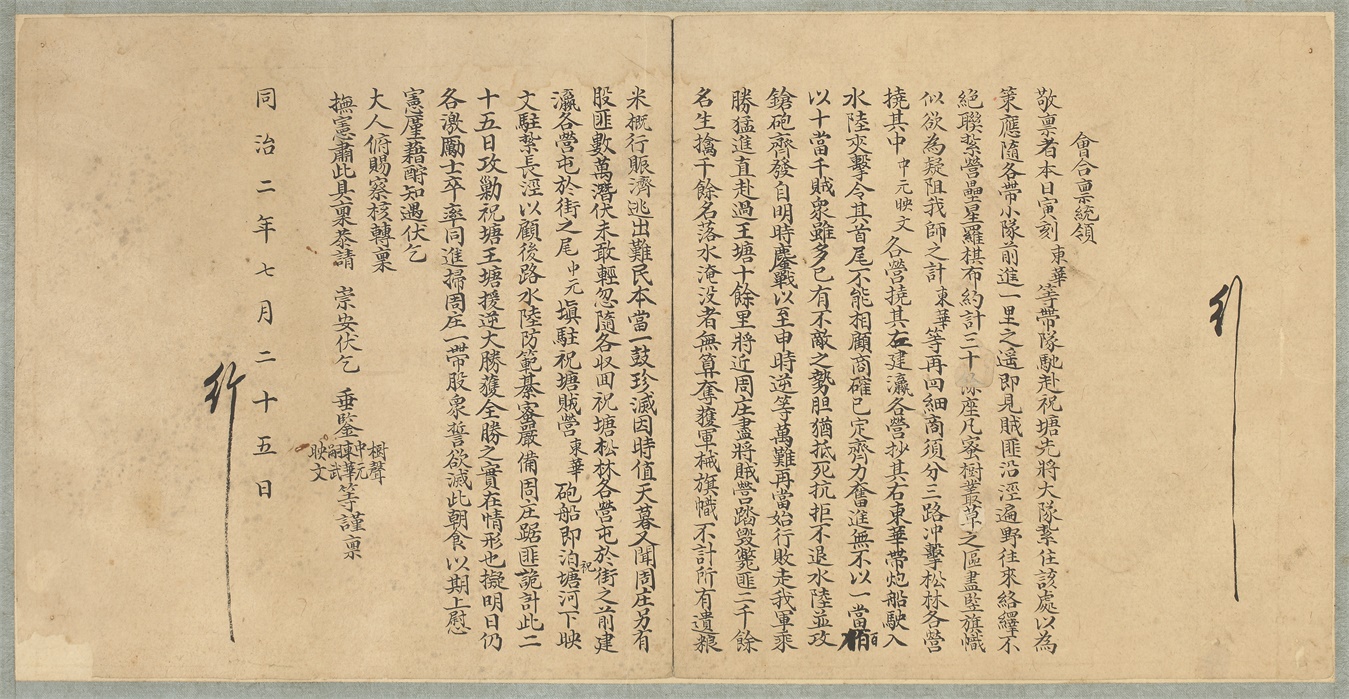 行
會合禀統領
敬禀者本日寅刻東華等帶隊馳赴祝塘先將大隊紮住該處以為
策應隨各帶小隊前進一里之遥即見賊匪沿涇遍野往來絡繹不
絕聯紮營壘星羅棋布約計三十餘座凡蜜樹叢草之區盡竪旗幟
似欲為疑阻我師之計東華等再四細商須分三路冲擊松林各營
撓其中中元映文各營撓其左建瀛各營抄其右東華帶炮船駛入
水陸夾擊令其首尾不能相顧商確已定齊力奮進無不以一當百
以十當千賊衆雖多已有不敵之勢胆猶抵死抗拒不退水陸並攻
鎗砲齊發自明時鏖戰以至申時逆等萬難再當始行敗走我軍乘
勝猛進直赴過王塘十餘里將近周庄盡將賊營踏毀斃匪二千餘
名生擒千餘名落水淹没者無算奪獲軍械旗幟不計所有遺粮
米概行賑濟逃出難民本當一鼓殄滅因時值天暮又聞周庄另有
股匪數萬潛伏未敢輕忽隨各収回祝塘松林各營屯於街之前建
瀛各營屯於街之尾中元塡駐祝塘賊營東華砲船即泊祝塘河下映
文駐紮長涇以顧後路水陸防範綦蜜嚴備周庄踞匪詭計此二
十五日攻勦祝塘王塘援逆大勝獲全勝之實在情形也擬明日仍
各激勵士卒率同進掃周庄一帶股衆誓欲滅此朝食以期上慰
憲廑藉酧知遇伏乞
大人俯賜察核轉稟
撫憲肅此具稟恭請　崇安伏乞　垂鍳樹聲中元東華嗣武映文等謹稟
同治二年七月二十五日
行